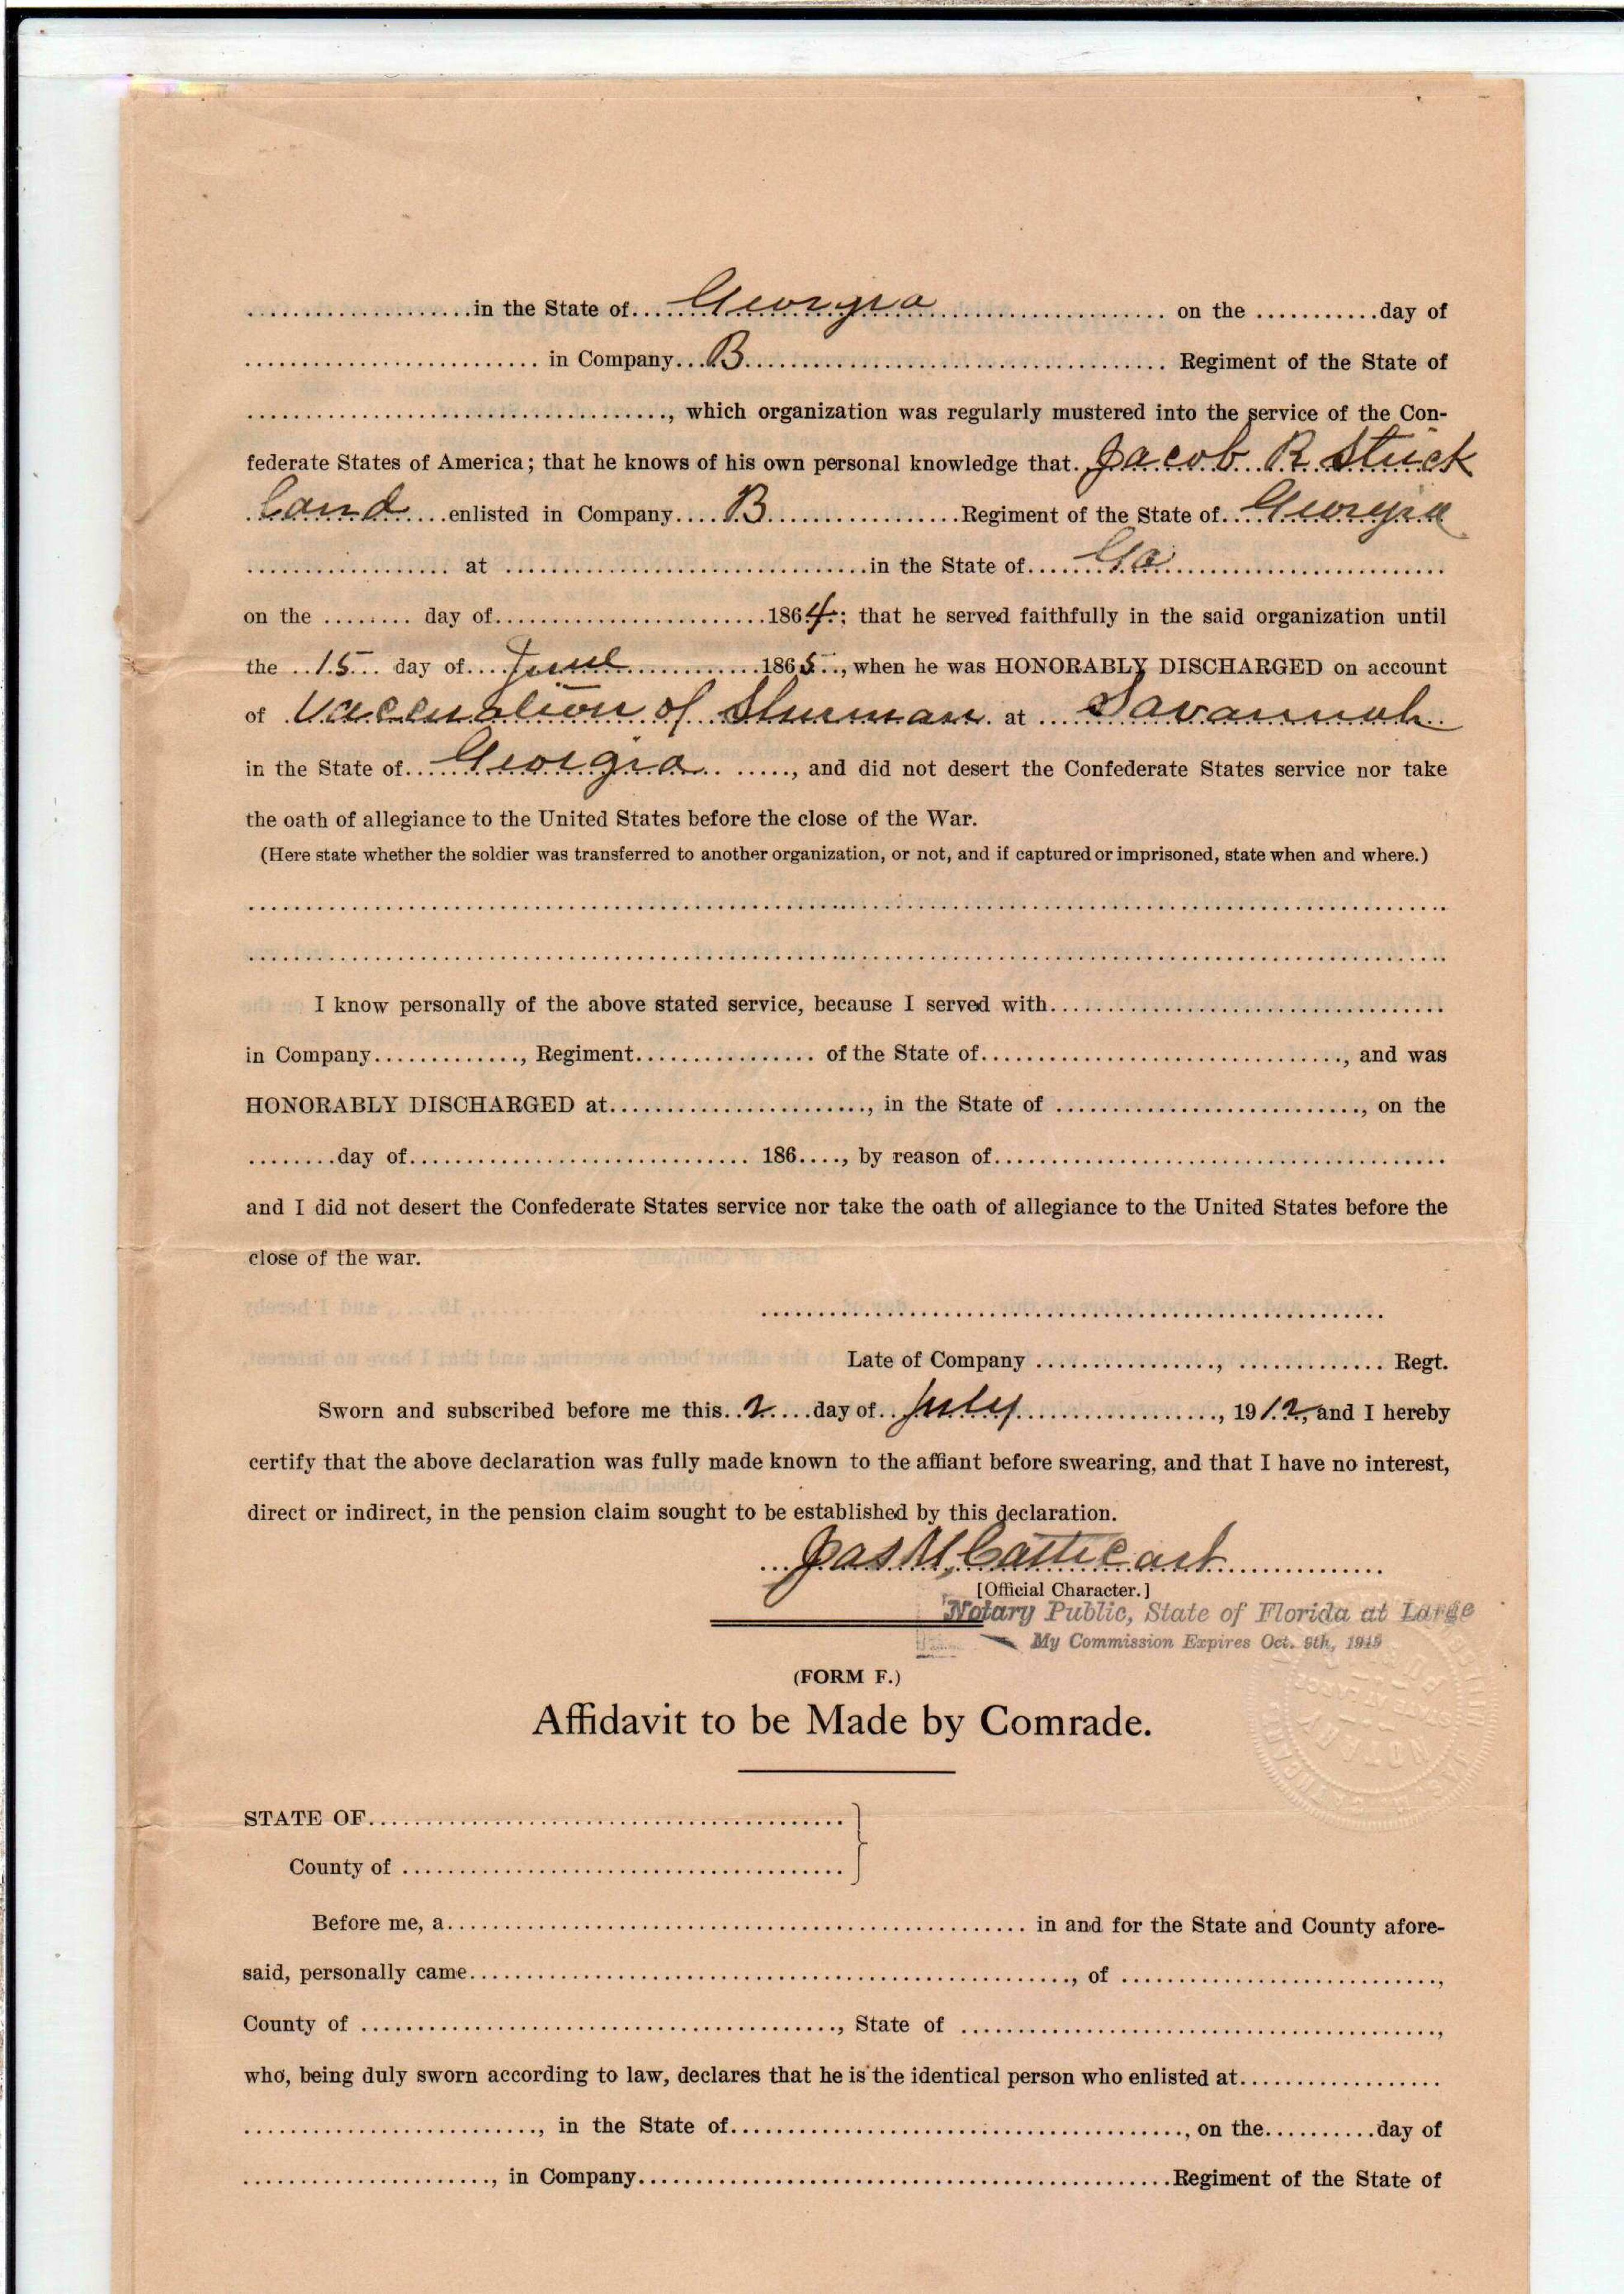 ....................in the State of....Georgia.................... on the ...........day of
.......................... in Company...B.................................... Regiment of the State of
....................................., which organization was regularly mustered into the service of the Con-
federate States of America; that he knows of his own personal knowledge that. Jacob R Strick
land....enlisted in Company....B.................Regiment of the State of..Georgia
.................. at ................................in the State of......Ga........................
on the ........ day of........................1864.; that he served faithfully in the said organization until
the ..15... day of....June............1865.., when he was HONORABLY DISCHARGED on account
of Vaccuation of Shurman at ....Savannah..
in the State of...Georgia.. ....., and did not desert the Confederate States service nor take
the oath of allegiance to the United States before the close of the War.
(Here state whether the soldier was transferred to another organization, or not, and if captured or imprisoned, state when and where.)
I know personally of the above stated service, because I served with...................................
in Company............., Regiment................ of the State of................................, and was
HONORABLY DISCHARGED at......................., in the State of ..........................., on the
........day of.............................. 186...., by reason of........................................
and I did not desert the Confederate States service nor take the oath of allegiance to the United States before the
close of the war.
Late of Company ................, ............. Regt.
Sworn and subscribed before me this..2....day of..July.................., 1912, and I hereby
certify that the above declaration was fully made known to the affiant before swearing, and that I have no interest,
direct or indirect, in the pension claim sought to be established by this declaration.
Jas M Cathcart
[Official Character.]
Notary Public, State of Florida at Large
My Commission Expires Oct. 9th, 1915
(FORM F.)
Affidavit to be Made by Comrade.
STATE OF..........................................
County of .......................................
Before me, a.................................................... in and for the State and County afore-
said, personally came....................................................., of ............................,
County of .........................................., State of ..........................................,
who, being duly sworn according to law, declares that he is the identical person who enlisted at..................
.........................., in the State of........................................, on the..........day of
......................, in Company...............................................Regiment of the State of